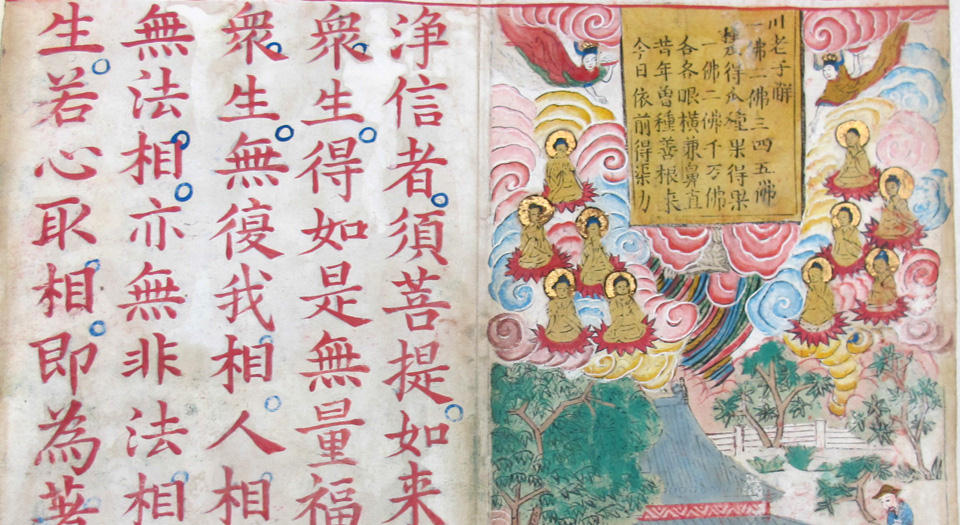 川老子觧
一佛二佛三四五佛
種瓜得瓜種果得果
一佛二佛千万佛
各各眼橫兼鼻直
昔年曾種善根来
今日依前得渠力
浄信者須菩提如来
衆生得如是無量福
衆生無復我相人相
無法相亦無非法相
生若心取相即為著